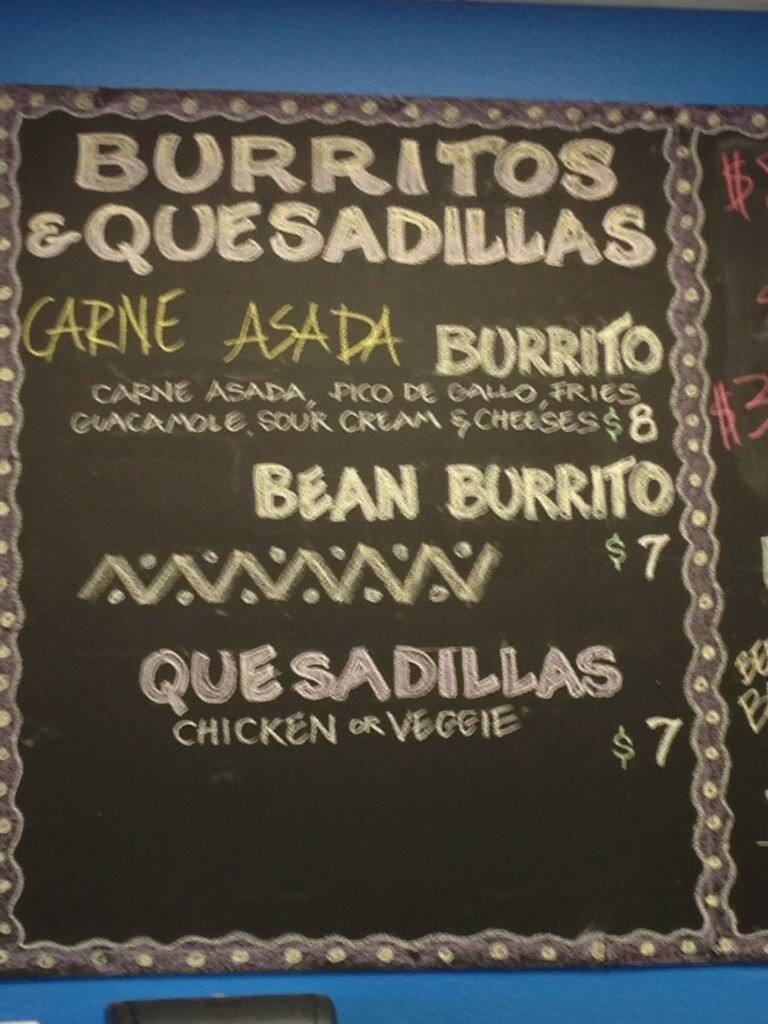 BURRITOS
& QUESADILLAS
CARNE ASADA BURRITO
CARNE ASADA, PICO DE GALLO, FRIES
GUACAMOLE, SOUR CREAM & CHEESES $8
BEAN BURRITO
$7
QUESADILLAS
CHICKEN OR VEGGIE
$7